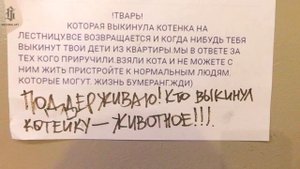 !ТВАРЬ!
КОТОРАЯ ВЫКИНУЛА КОТЕНКА НА
ЛЕСТНИЦУ.ВСЕ ВОЗВРАЩАЕТСЯ И КОГДА НИБУДЬ ТЕБЯ
ВЫКИНУТ ТВОИ ДЕТИ ИЗ КВАРТИРЫ.МЫ В ОТВЕТЕ ЗА
ТЕХ КОГО ПРИРУЧИЛИ.ВЗЯЛИ КОТА И НЕ МОЖЕТЕ С
НИМ ЖИТЬ ПРИСТРОЙТЕ К НОРМАЛЬНЫМ ЛЮДЯМ
КОТОРЫЕ МОГУТ. ЖИЗНЬ БУМЕРАНГ.ЖДИ)
ПОДДЕРЖИВАЮ! КТО ВЫКИНУЛ
КОТЕЙКУ — ЖИВОТНОЕ!!!.